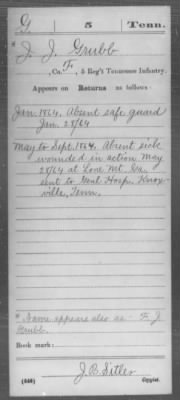 G. 5 Tenn.
* J. J. Grubb
, Co. F, 5 Reg't Tennessee Infantry.
Appears on
Returns as follows:
Jan. 1864, Absent safe guard
Jan. 25/64
May to Sept. 1864. Absent sick
wounded in action May
25/64 at Lone Mt. Ga.
sent to Genl Hosp. Knox-
ville, Tenn.
* Name appears also as F. J.
Grubb.
Book mark:
J. B. Sitler
(546) Copyist.